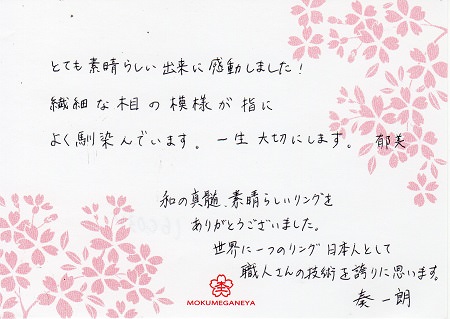 とても素晴らしい出来に感動しました！
繊細な木目の模様が指に
よく馴染んでいます。一生大切にします。 郁美
和の真髄、素晴らしいリングを
ありがとうございました。
世界に一つのリング日本人として
職人さんの技術を誇りに思います。
奏一朗
MOKUMEGANEYA